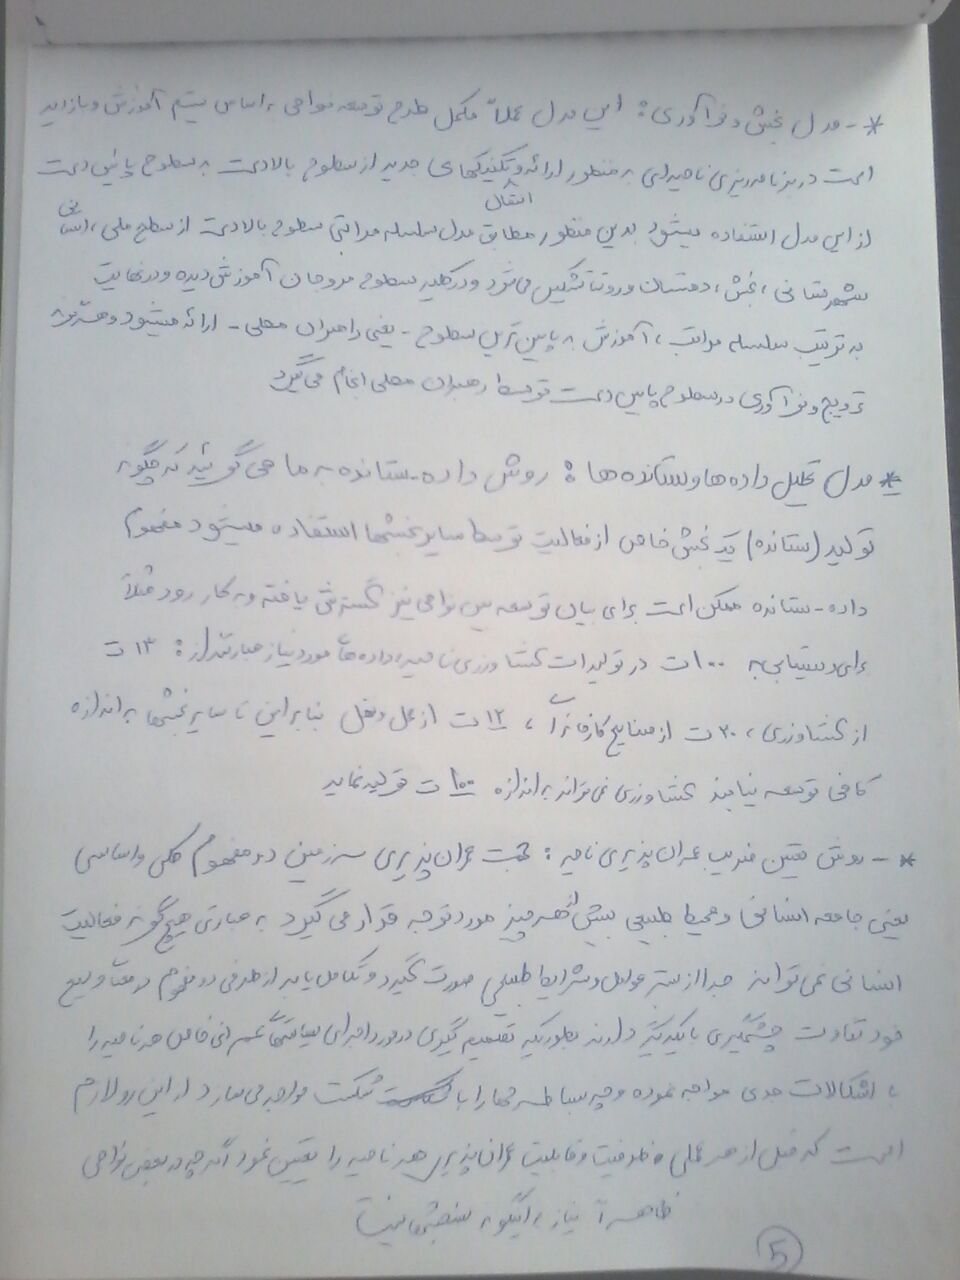 * - مدل پخش و نوآوری: این مدل عملاً مکمل طرح توسعه نواحی براساس سیستم آموزش و بازدید
است در برنامه‌ریزی ناحیه‌ای به منظور ارائه و انتقال تکنیکهای جدید از سطوح بالادست به سطوح پائین دست
از این مدل استفاده میشود بدین منظور مطابق مدل سلسله مراتبی سطوح بالادست از سطح ملی، استانی
شهرستانی، بخش، دهستان و روستا تشکیل می‌شود و در کلیه سطوح مروجان آموزش دیده و در نهایت
به ترتیب سلسله مراتب، آموزش به پایین ترین سطوح - یعنی راهبران محلی - ارائه میشود و هر گونه
ترویج و نوآوری در سطوح پایین دست توسط رهبران محلی انجام می‌گیرد
* مدل تحلیل داده‌ها و ستانده‌ها: روش داده-ستانده به ما می‌گوید که چگونه
تولید (ستانده) یک بخش خاص از فعالیت توسط سایر بخشها استفاده میشود مفهوم
داده-ستانده ممکن است برای بیان توسعه بین نواحی نیز گسترش یافته و به کار رود مثلاً
برای دستیابی به ۱۰۰ ت در تولیدات کشاورزی ناحیه، داده‌های مورد نیاز عبارتند از: ۱۳ ت
از کشاورزی، ۳۰ ت از صنایع کارخانه‌ای، ۱۲ ت از حمل و نقل بنابراین تا سایر بخش‌ها به اندازه
کافی توسعه نیابند کشاورزی نمی‌تواند به اندازه ۱۰۰ ت تولید نماید
* - روش تعیین ضریب عمران‌پذیری ناحیه: جهت عمران پذیری سرزمین دو مفهوم کلی و اساسی
یعنی جامعه انسانی و محیط طبیعی بیش از هر چیز مورد توجه قرار می‌گیرد به عبارتی هیچ گونه فعالیت
انسانی نمی‌تواند جدا از بستر عوامل و شرایط طبیعی صورت گیرد و تکامل یابد از طرفی دو مفهوم در معنا وسیع
خود تفاوت چشمگیری با یکدیگر دارند بطوریکه تصمیم گیری در مورد اجرای سیاستهای عمرانی خاص هر ناحیه را
با اشکالات جدی مواجه نموده و چه بسا طرحها را با شکست مواجه می‌سازد از این رو لازم
است که قبل از هر عملی ظرفیت و قابلیت عمران پذیری هر ناحیه را تعیین نمود اگر چه در بعضی نواحی
ظاهراً نیاز به اینگونه سنجشها نیست
5